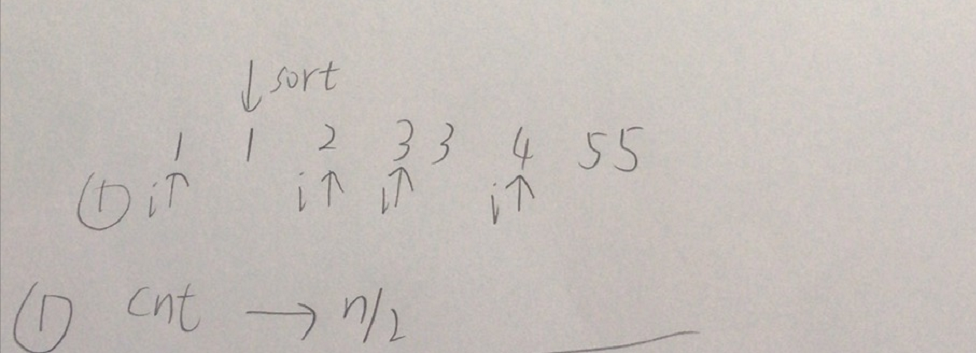 ↓ sort
1 1 2 3 3 4 5 5
① i↑ i↑ i↑ i↑
① cnt → n/2